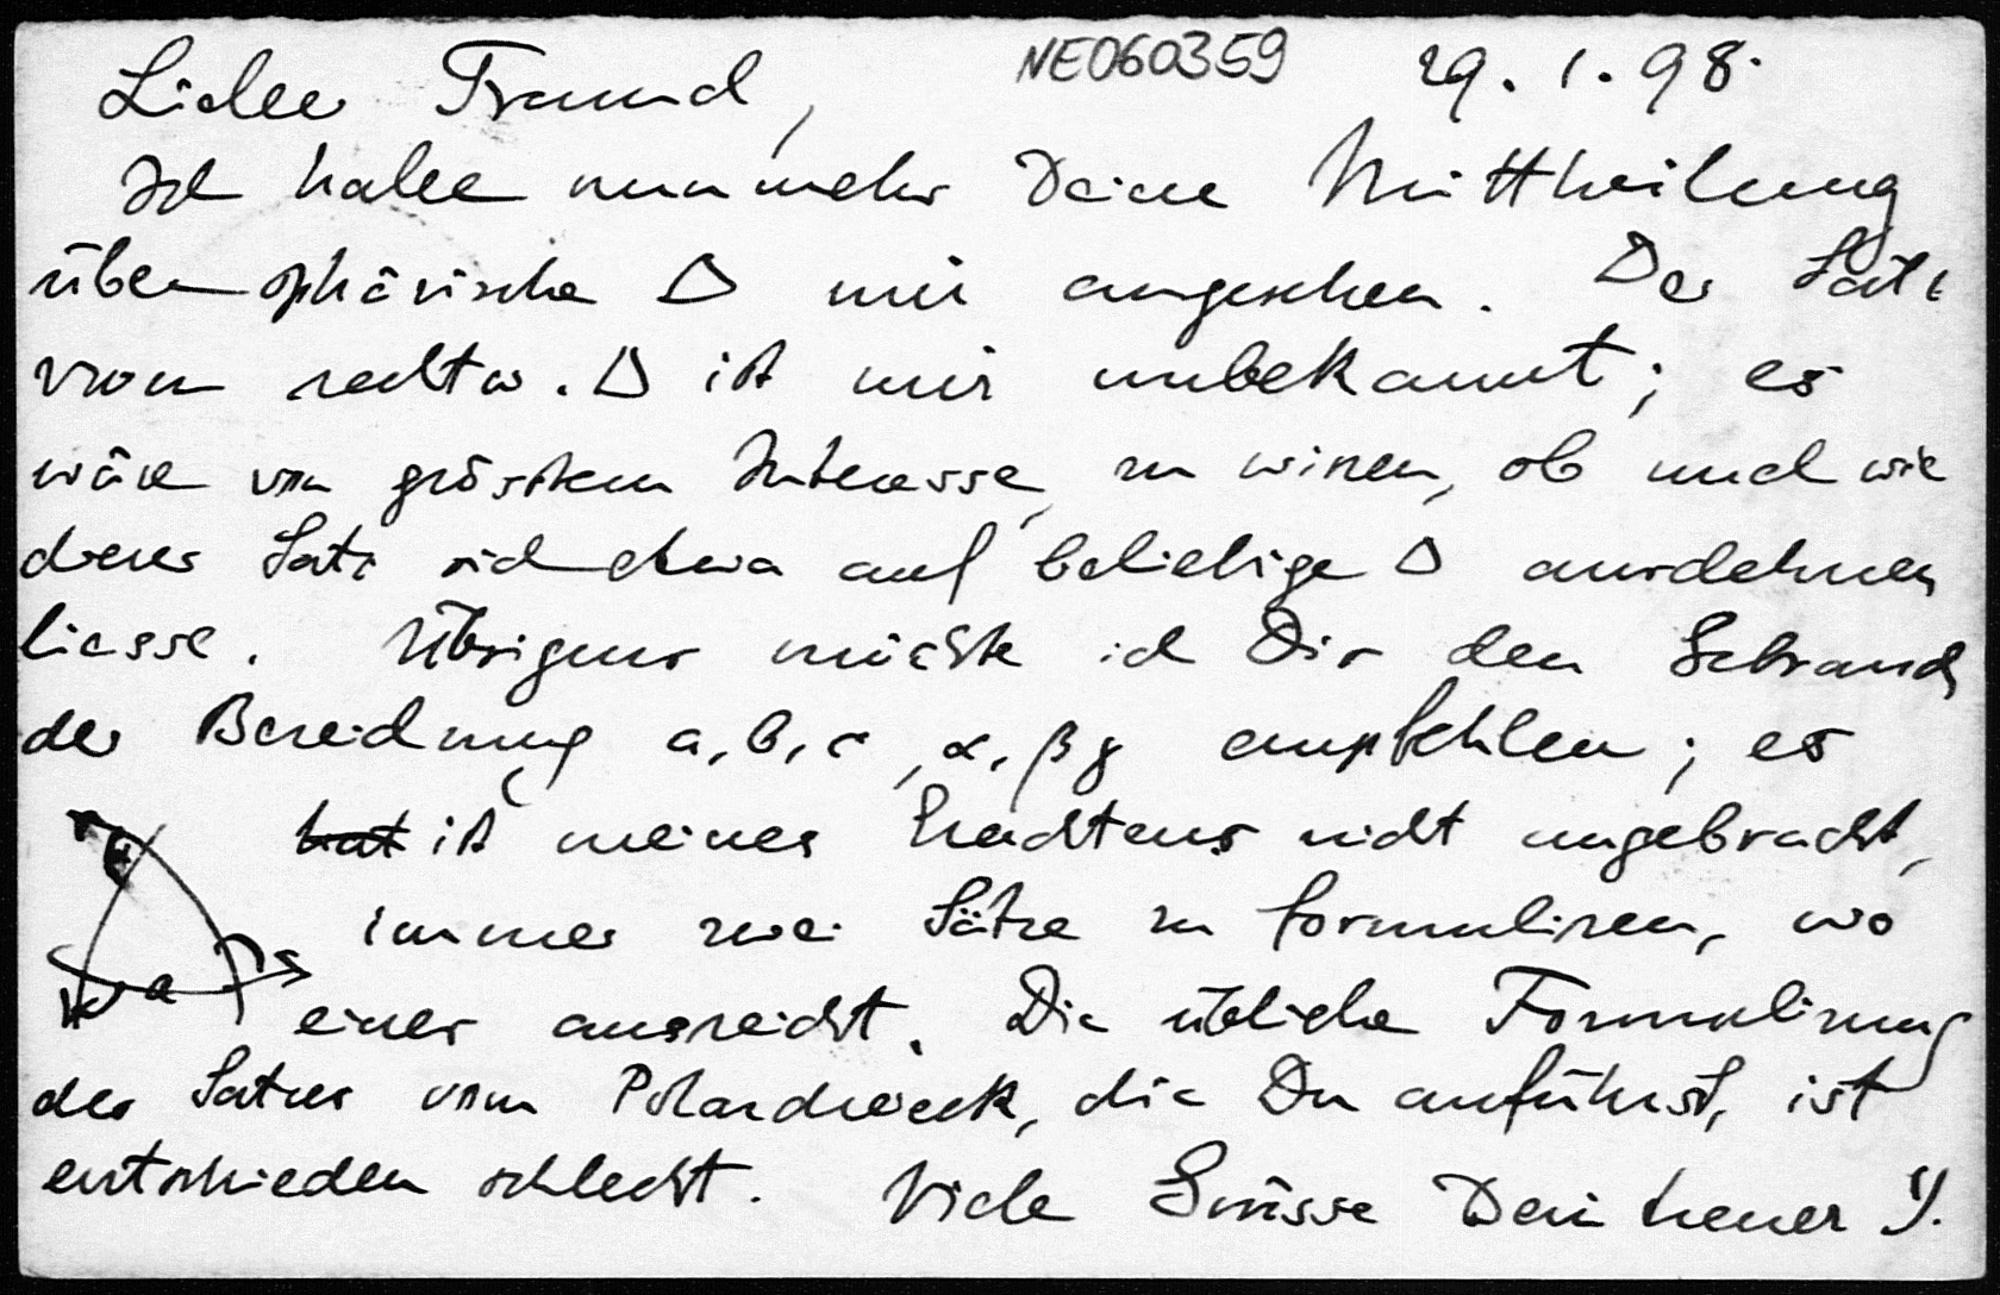 Lieber Freund, NE060359 29. 1. 98.
Ich habe nunmehr Deine Mittheilung
über sphärische △ mir angesehen. Der Satz
vom rechtw. △ ist mir unbekannt; es
wäre von grösstem Interesse, zu wissen, ob und wie
dieser Satz sich etwa auf beliebige △ ausdehnen
liesse. Übrigens möchte ich Dir den Gebrauch
der Bezeichnung a, b, c, α, β γ empfehlen; es
hat ist meines Erachtens nicht angebracht,
immer zwei Sätze zu formuliren, wo
a
einer ausreicht. Die übliche Formulirung
des Satzes vom Polardreieck, die Du anführst, ist
entschieden schlecht. Viele Grüsse Dein treuer